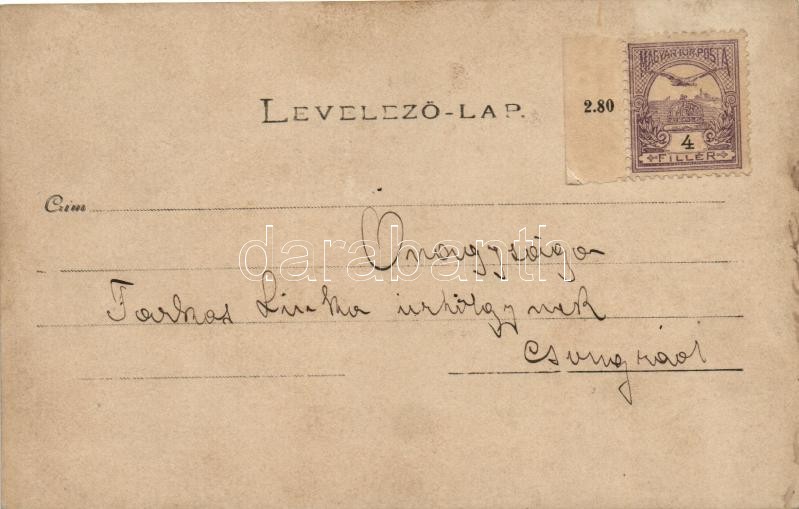 MAGYAR KIR. POSTA
2.80
4
FILLÉR
LEVELEZŐ-LAP.
Czím
Őnagysága
Farkas Linka úrhölgynek
Csongrád
darabanth